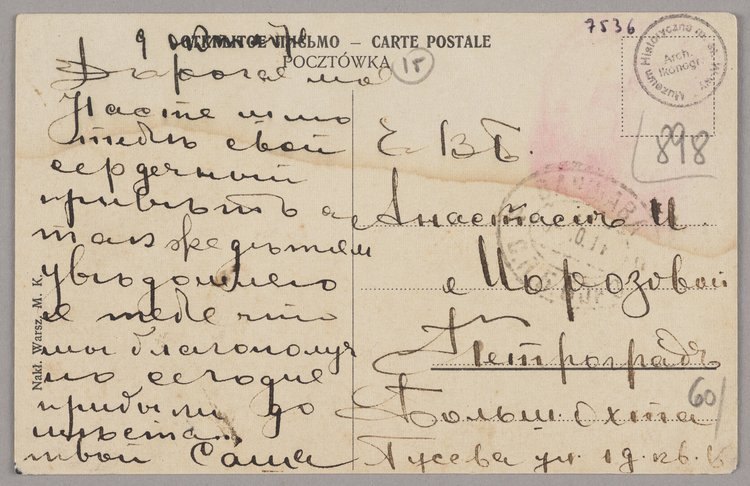 ОТКРЫТОЕ ПИСЬМО – CARTE POSTALE
POCZTÓWKA
7536
15
Muzeum Historyczne m. st. W-wy
Arch. Ikonogr.
898
9
Дорогая моя
Настя шлю
тебѣ свой
сердечный
привѣтъ а
такж
увѣдомляю
тебе что
мы благополуч
но сегодне
прибыли до
мѣста...
твой Саша
Е. В Б.
Анастасіи И
Морозовой
Петроградъ
Больш. Охта
Гусева ул. 1д. кв.
60/
Nakł. Warsz. M. K.